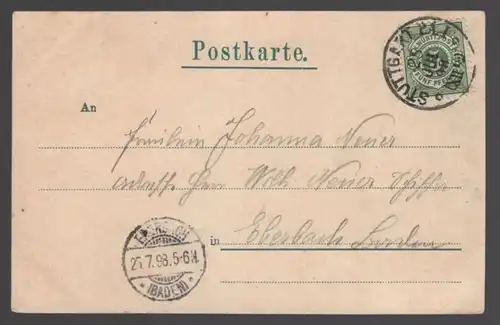 Postkarte.
STUTTGART
FÜNF
An
Fräulein Johanna Neuer
adresse Herr Wilh Neuer Schiffer
in Eberbach Baden
EBERBACH
25.7.98.5-6N.
* (BADEN) *